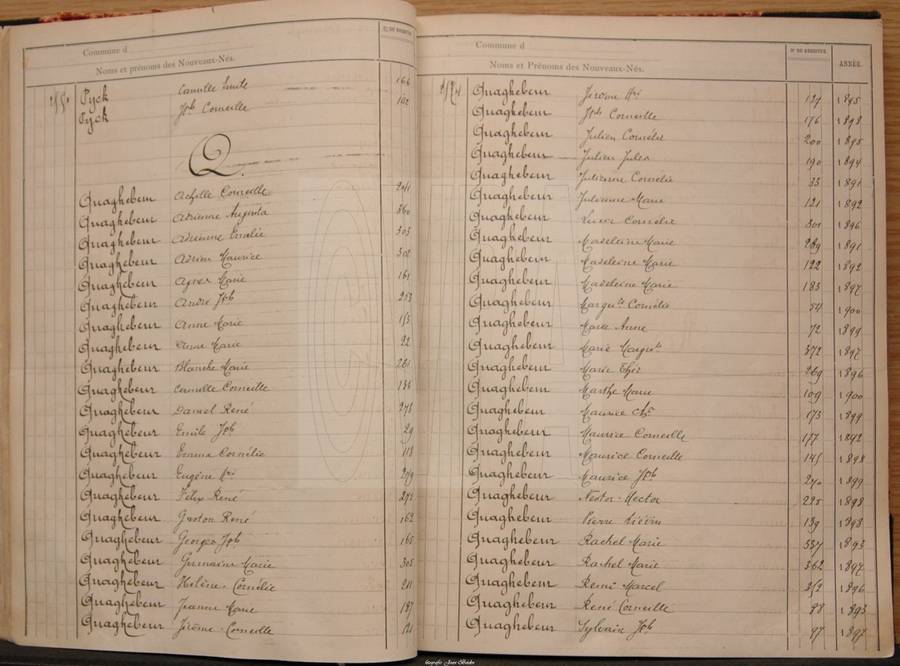 N° DU REGISTRE
Commune d
Noms et prénoms des Nouveaux-Nés.
Pyck Camille Emile 166
Pyck Jph Corneille 102
Q
Quaghebeur Achille Corneille 241
Quaghebeur Adrienne Augusta 360
Quaghebeur Adrienne Emelie 303
Quaghebeur Adrien Maurice 302
Quaghebeur Agnes Marie 161
Quaghebeur André Jph 213
Quaghebeur Anne Marie 153
Quaghebeur Anne Marie 22
Quaghebeur Blanche Marie 261
Quaghebeur Camille Corneille 134
Quaghebeur Daniel René 278
Quaghebeur Emile Jph 29
Quaghebeur Emma Cornélie 118
Quaghebeur Eugène Hri 279
Quaghebeur Félix René 271
Quaghebeur Gaston René 162
Quaghebeur Georges Jph 165
Quaghebeur Germaine Marie 305
Quaghebeur Hélène Cornélie 201
Quaghebeur Jeanne Marie 187
Quaghebeur Jérôme Corneille 121
Commune d
Noms et Prénoms des Nouveaux-Nés.
N° DU REGISTRE
ANNÉE.
Quaghebeur Jérome Hri 127 1895
Quaghebeur Jph Corneille 176 1898
Quaghebeur Julien Cornélis 200 1895
Quaghebeur Julien Jules 190 1894
Quaghebeur Julienne Cornélie 35 1891
Quaghebeur Julienne Marie 121 1892
Quaghebeur Cornélie 301 1896
Quaghebeur Madeleine Marie 289 1891
Quaghebeur Madeleine Marie 122 1892
Quaghebeur Madeleine Marie 185 1897
Quaghebeur Margu^te Cornélie 54 1900
Quaghebeur Marie Anne 72 1899
Quaghebeur Marie Margte 372 1897
Quaghebeur Marie Thér 269 1896
Quaghebeur Marthe Marie 109 1900
Quaghebeur Maurice Chs 173 1899
Quaghebeur Maurice Corneille 177
Quaghebeur Maurice Corneille 145 1898
Quaghebeur Maurice Jph 240 1899
Quaghebeur Nestor Hector 225 1898
Quaghebeur Pierre 139 1898
Quaghebeur Rachel Marie 337 1893
Quaghebeur Rachel Marie 362 1897
Quaghebeur Remi Marcel 312 1896
Quaghebeur René Corneille 88 1893
Quaghebeur Sylvain Jph 87 1897